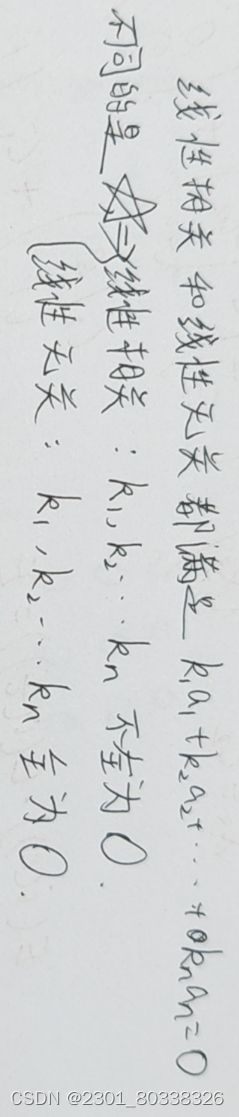 线性相关和线性无关都满足 k₁a₁+k₂a₂+···+kₙaₙ=0
不同的是 ☆⇒线性相关:k₁,k₂···kₙ 不全为0.
线性无关:k₁,k₂···kₙ 全为0.
CSDN @2301_80338326